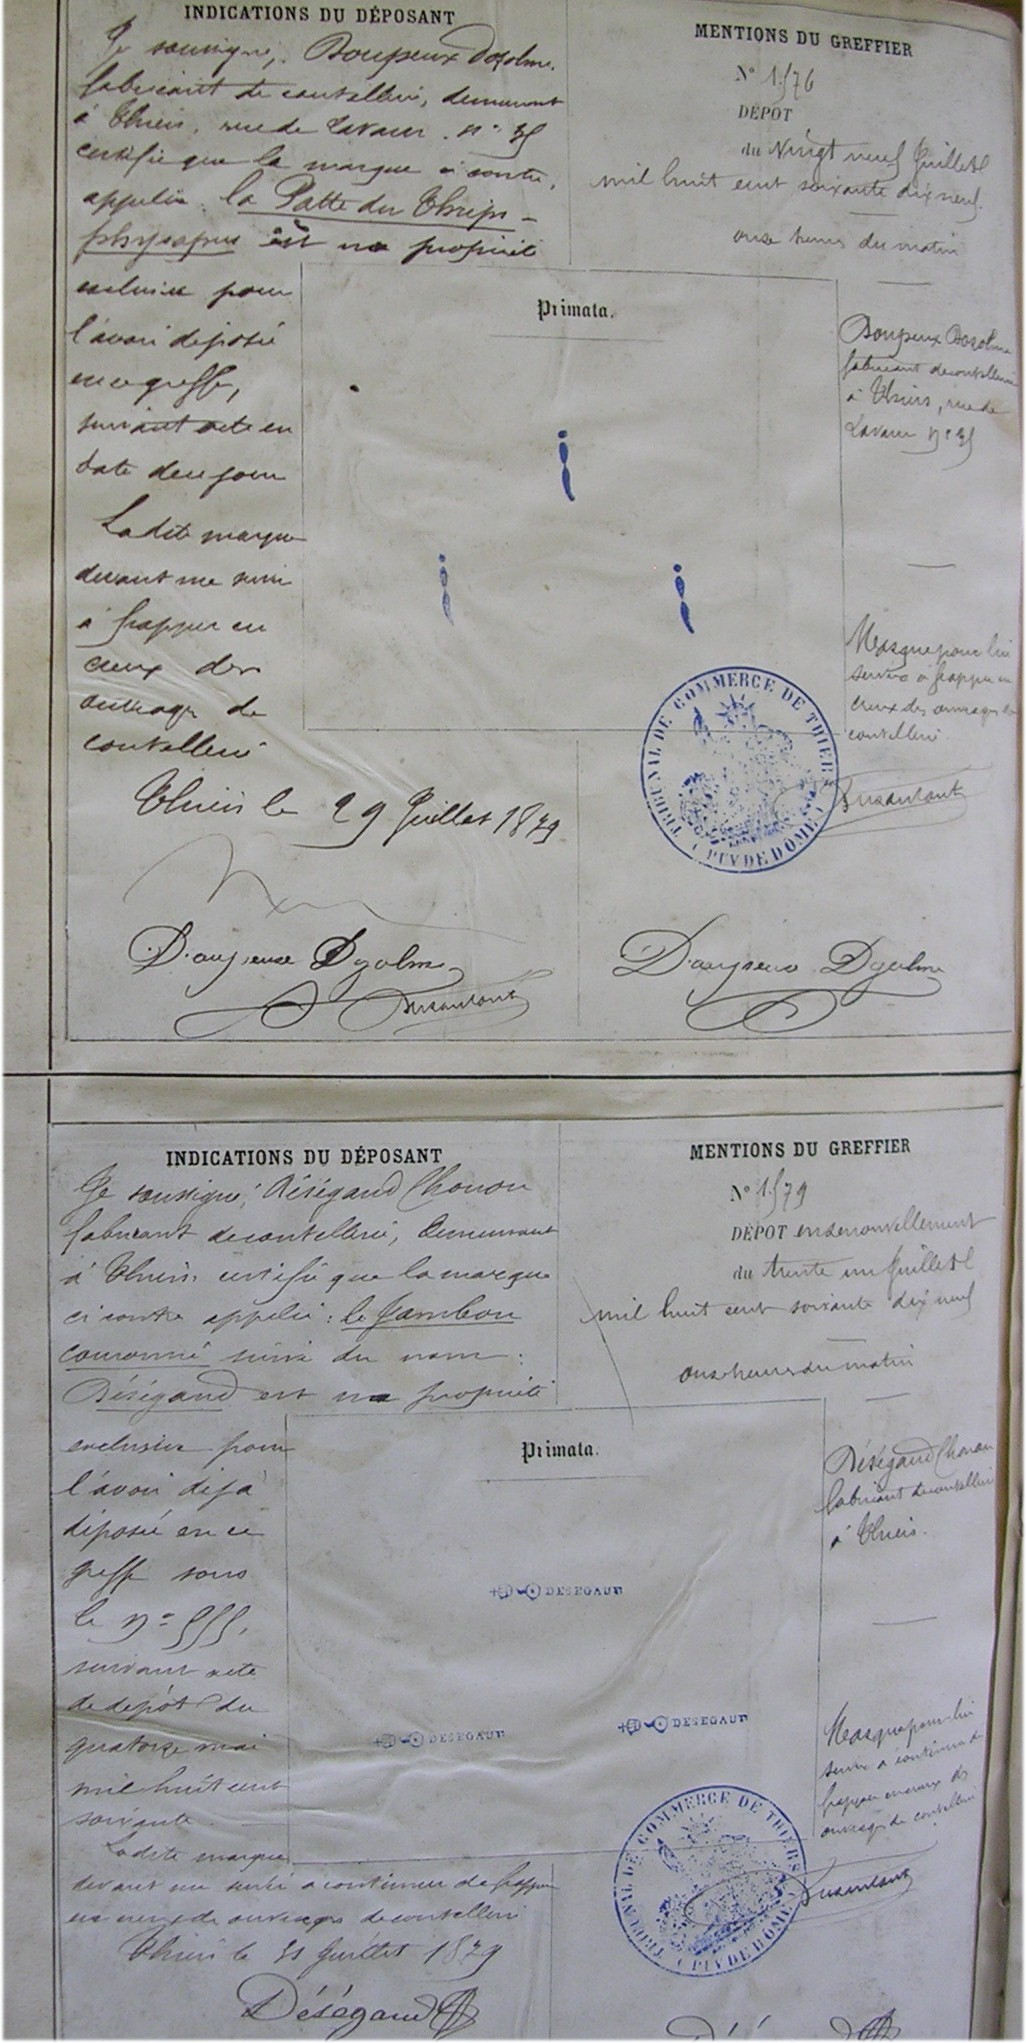 INDICATIONS DU DÉPOSANT
Je soussigné, Dozolme
fabricant de coutellerie, demeurant
à Thiers, rue de Lavaur. n° 35
certifie que la marque ci contre,
appelée: la Patte du Thrips-
physapus est ma propriété
exclusive pour
l'avoir déposée
en ce greffe,
suivant acte en
date de ce jour
Ladite marque
devant me servir
à frapper en
creux des
ouvrages de
coutellerie
Thiers le 29 Juillet 1879
MENTIONS DU GREFFIER
N° 1.576
DÉPOT
du Vingt neuf Juillet
mil huit cent soixante dix neuf.
onze heures du matin
Primata.
Dozolme
fabricant de coutellerie
à Thiers, rue de
Lavaur n° 35
Marque pour lui
servir à frapper en
creux des ouvrages de
coutellerie
TRIBUNAL DE COMMERCE DE THIERS
(PUY DE DÔME)
INDICATIONS DU DÉPOSANT
Je soussigné, Déségaud Chonon
fabricant de coutellerie, demeurant
à Thiers, certifie que la marque
ci contre appelée: le Jambon
couronné suivi du nom:
Déségaud est ma propriété
exclusive pour
l'avoir déjà
déposée en ce
greffe sous
le n° 555,
suivant acte
de dépôt du
quatorze mai
mil huit cent
soixante.
Ladite marque
devant me servir à continuer de frapper
en creux des ouvrages de coutellerie
Thiers le 31 Juillet 1879
Déségaud
MENTIONS DU GREFFIER
N° 1.579
DÉPOT en renouvellement
du trente un Juillet
mil huit cent soixante dix neuf
onze heures du matin
Primata.
Déségaud Chonon
fabricant de coutellerie
à Thiers.
DESEGAUD
DESEGAUD
DESEGAUD
Marque pour lui
servir à continuer de
frapper en creux des
ouvrages de coutellerie
TRIBUNAL DE COMMERCE DE THIERS
(PUY DE DÔME)